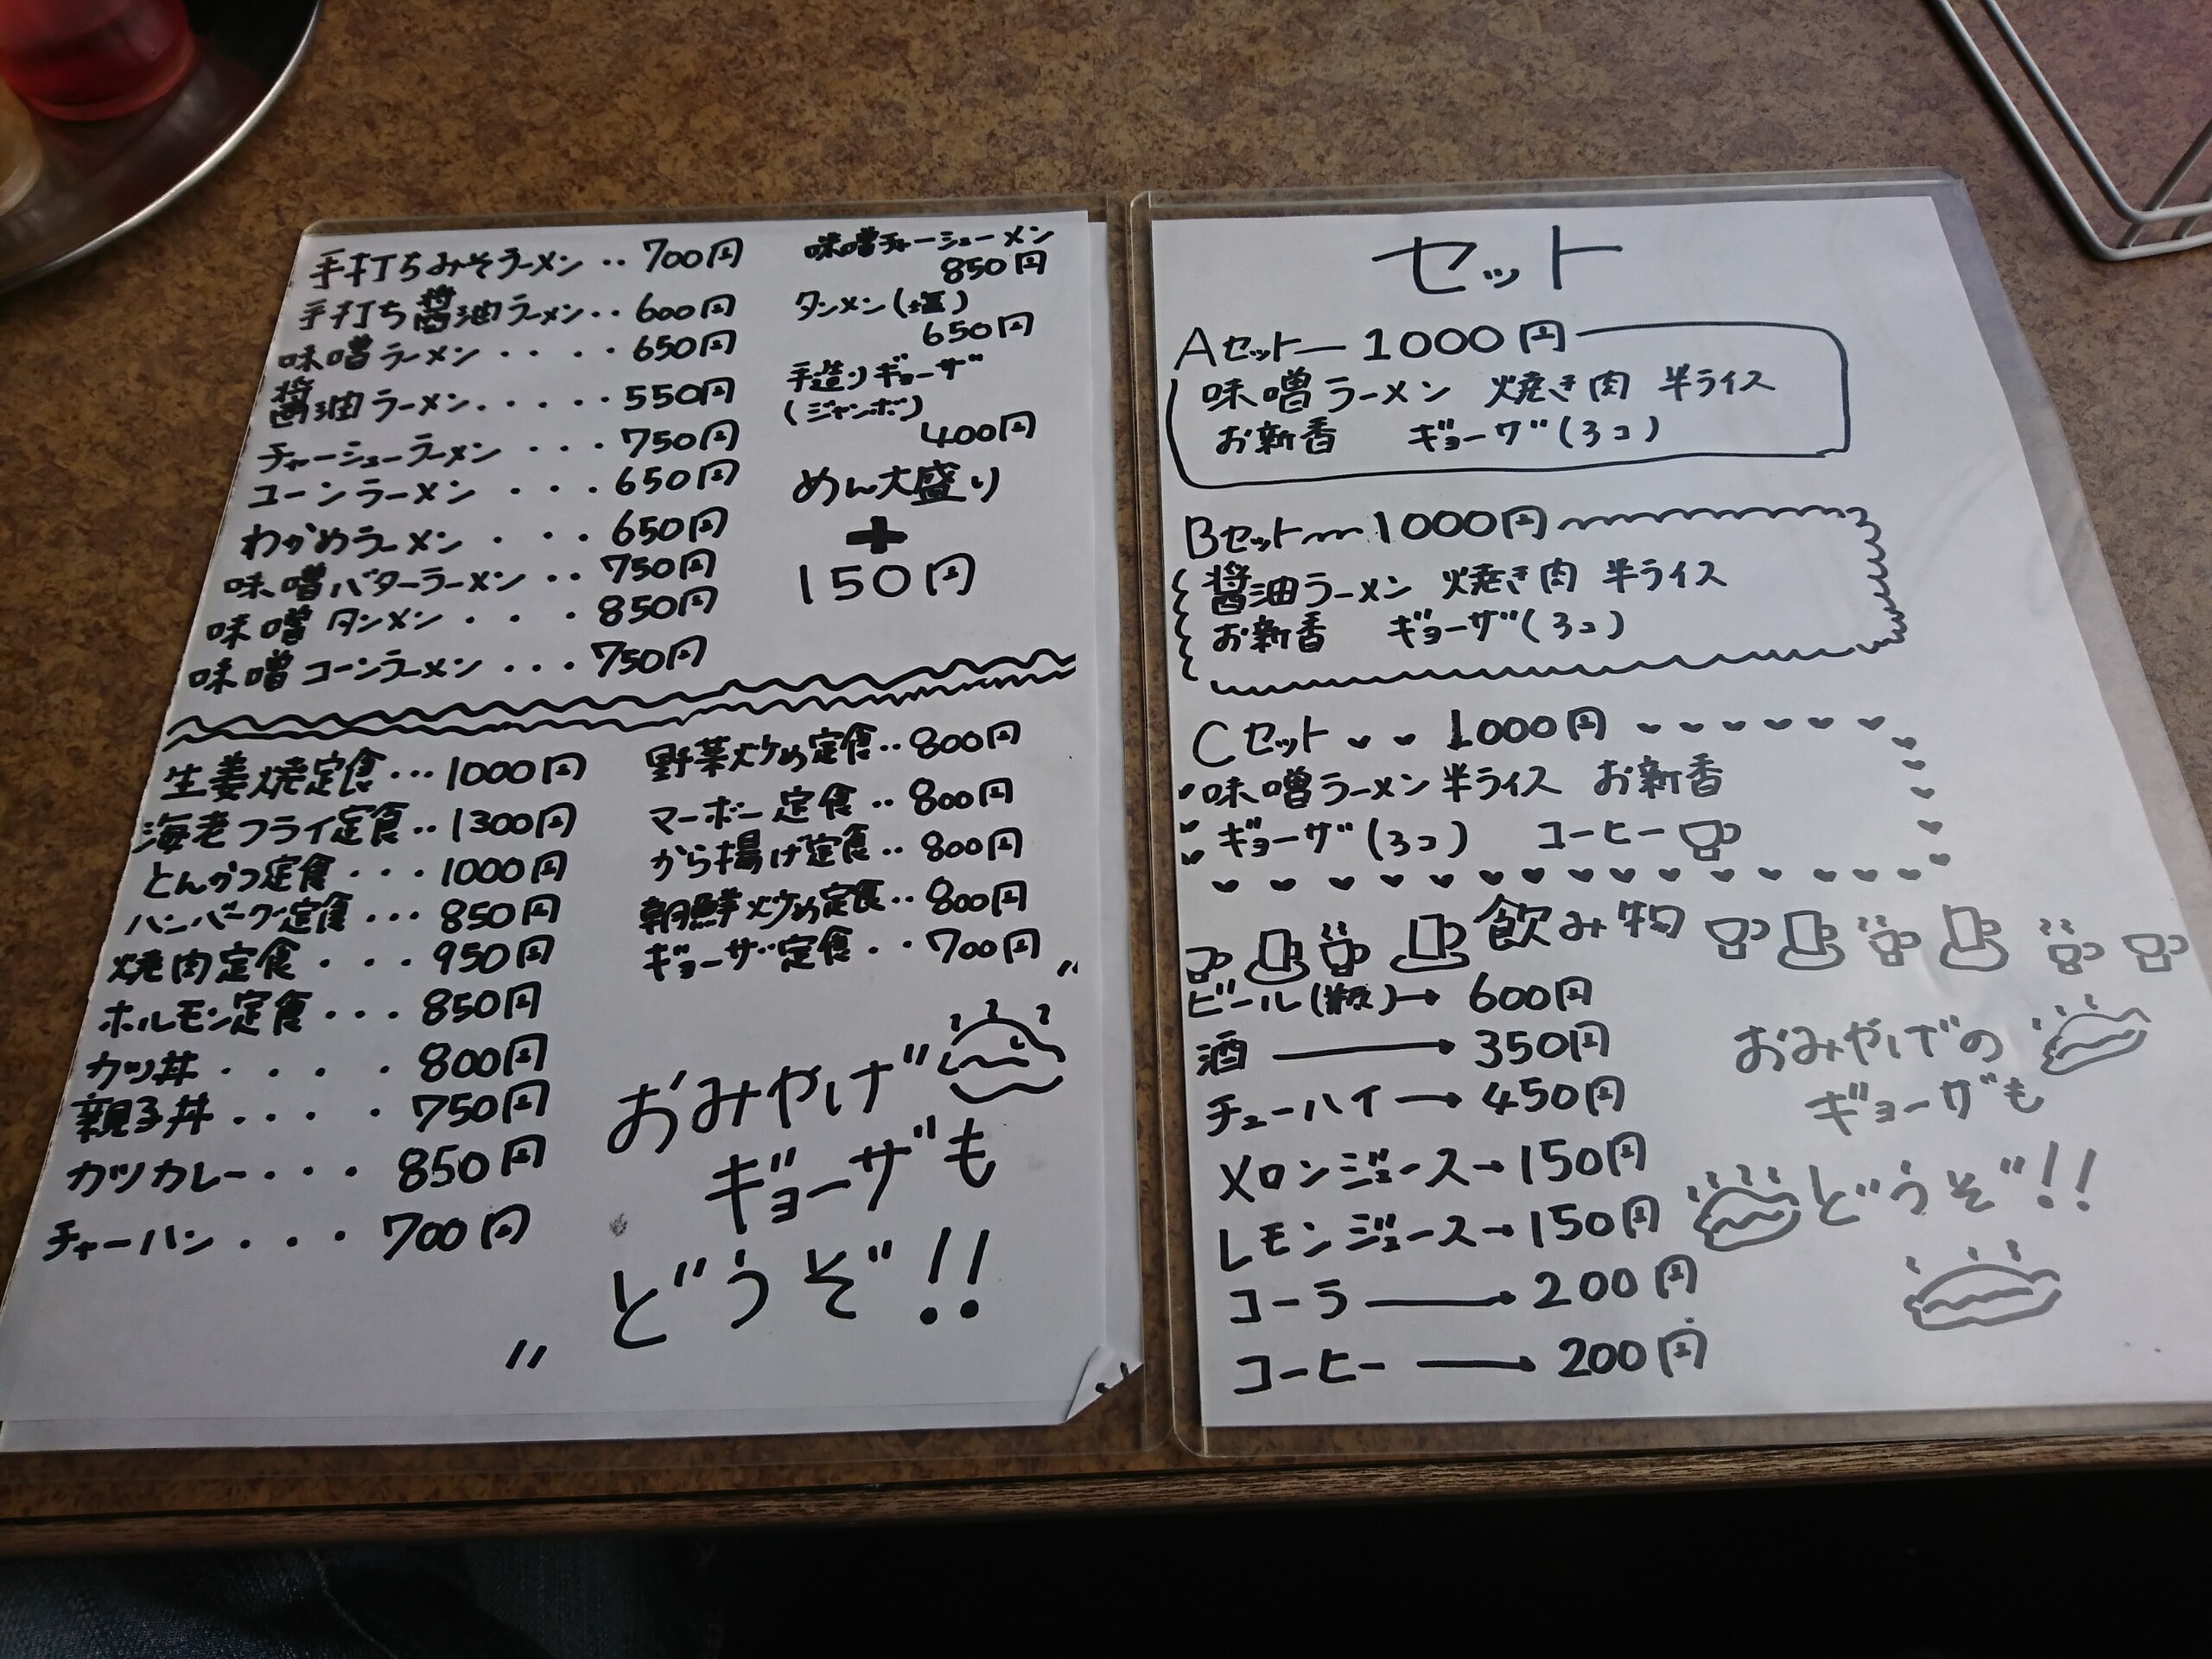 手打ちみそラーメン‥700円
手打ち醤油ラーメン‥600円
味噌ラーメン・・・・650円
醤油ラーメン・・・・・550円
チャーシューラーメン・・・750円
コーンラーメン・・・650円
わかめラーメン・・・650円
味噌バターラーメン‥750円
味噌タンメン・・・850円
味噌コーンラーメン・・・750円
味噌チャーシューメン
850円
タンメン(塩)
650円
手造りギョーザ
(ジャンボ)
400円
めん大盛り
+
150円
生姜焼定食・・・1000円
海老フライ定食‥1300円
とんかつ定食・・・1000円
ハンバーグ定食・・・850円
焼肉定食・・・950円
ホルモン定食・・・850円
カツ丼・・・・800円
親子丼・・・・750円
カツカレー・・・850円
チャーハン・・・700円
野菜炒め定食‥800円
マーボー定食‥800円
から揚げ定食‥800円
朝鮮炒め定食‥800円
ギョーザ定食‥700円
おみやげ
ギョーザも
どうぞ!!
セット
Aセット―1000円
味噌ラーメン 焼き肉 半ライス
お新香 ギョーザ(3コ)
Bセット〜1000円
醤油ラーメン 焼き肉 半ライス
お新香 ギョーザ(3コ)
Cセット 1000円
味噌ラーメン半ライス お新香
ギョーザ(3コ) コーヒー
飲み物
ビール(瓶)→600円
酒→350円
チューハイ→450円
メロンジュース→150円
レモンジュース→150円
コーラ→200円
コーヒー→200円
おみやげの
ギョーザも
どうぞ!!